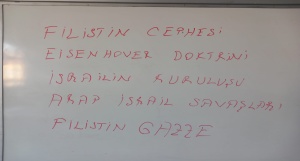 FİLİSTİN CEPHESİ
EISENHOVER DOKTRİNİ
İSRAİLİN KURULUŞU
ARAP İSRAİL SAVAŞLARI
FİLİSTİN GAZZE